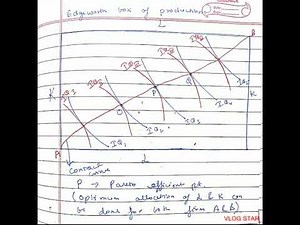 Edgeworth box of production
L
B
IQ3
IQ2
IQ1
K
O
P
Q
K
IQ1
IQ2
IQ3
IQ4
A
L
Contract
curve
P → Pareto efficient pt.
(Optimum allocation of L & K can
be done for both firm A & B)
VLOG STAR